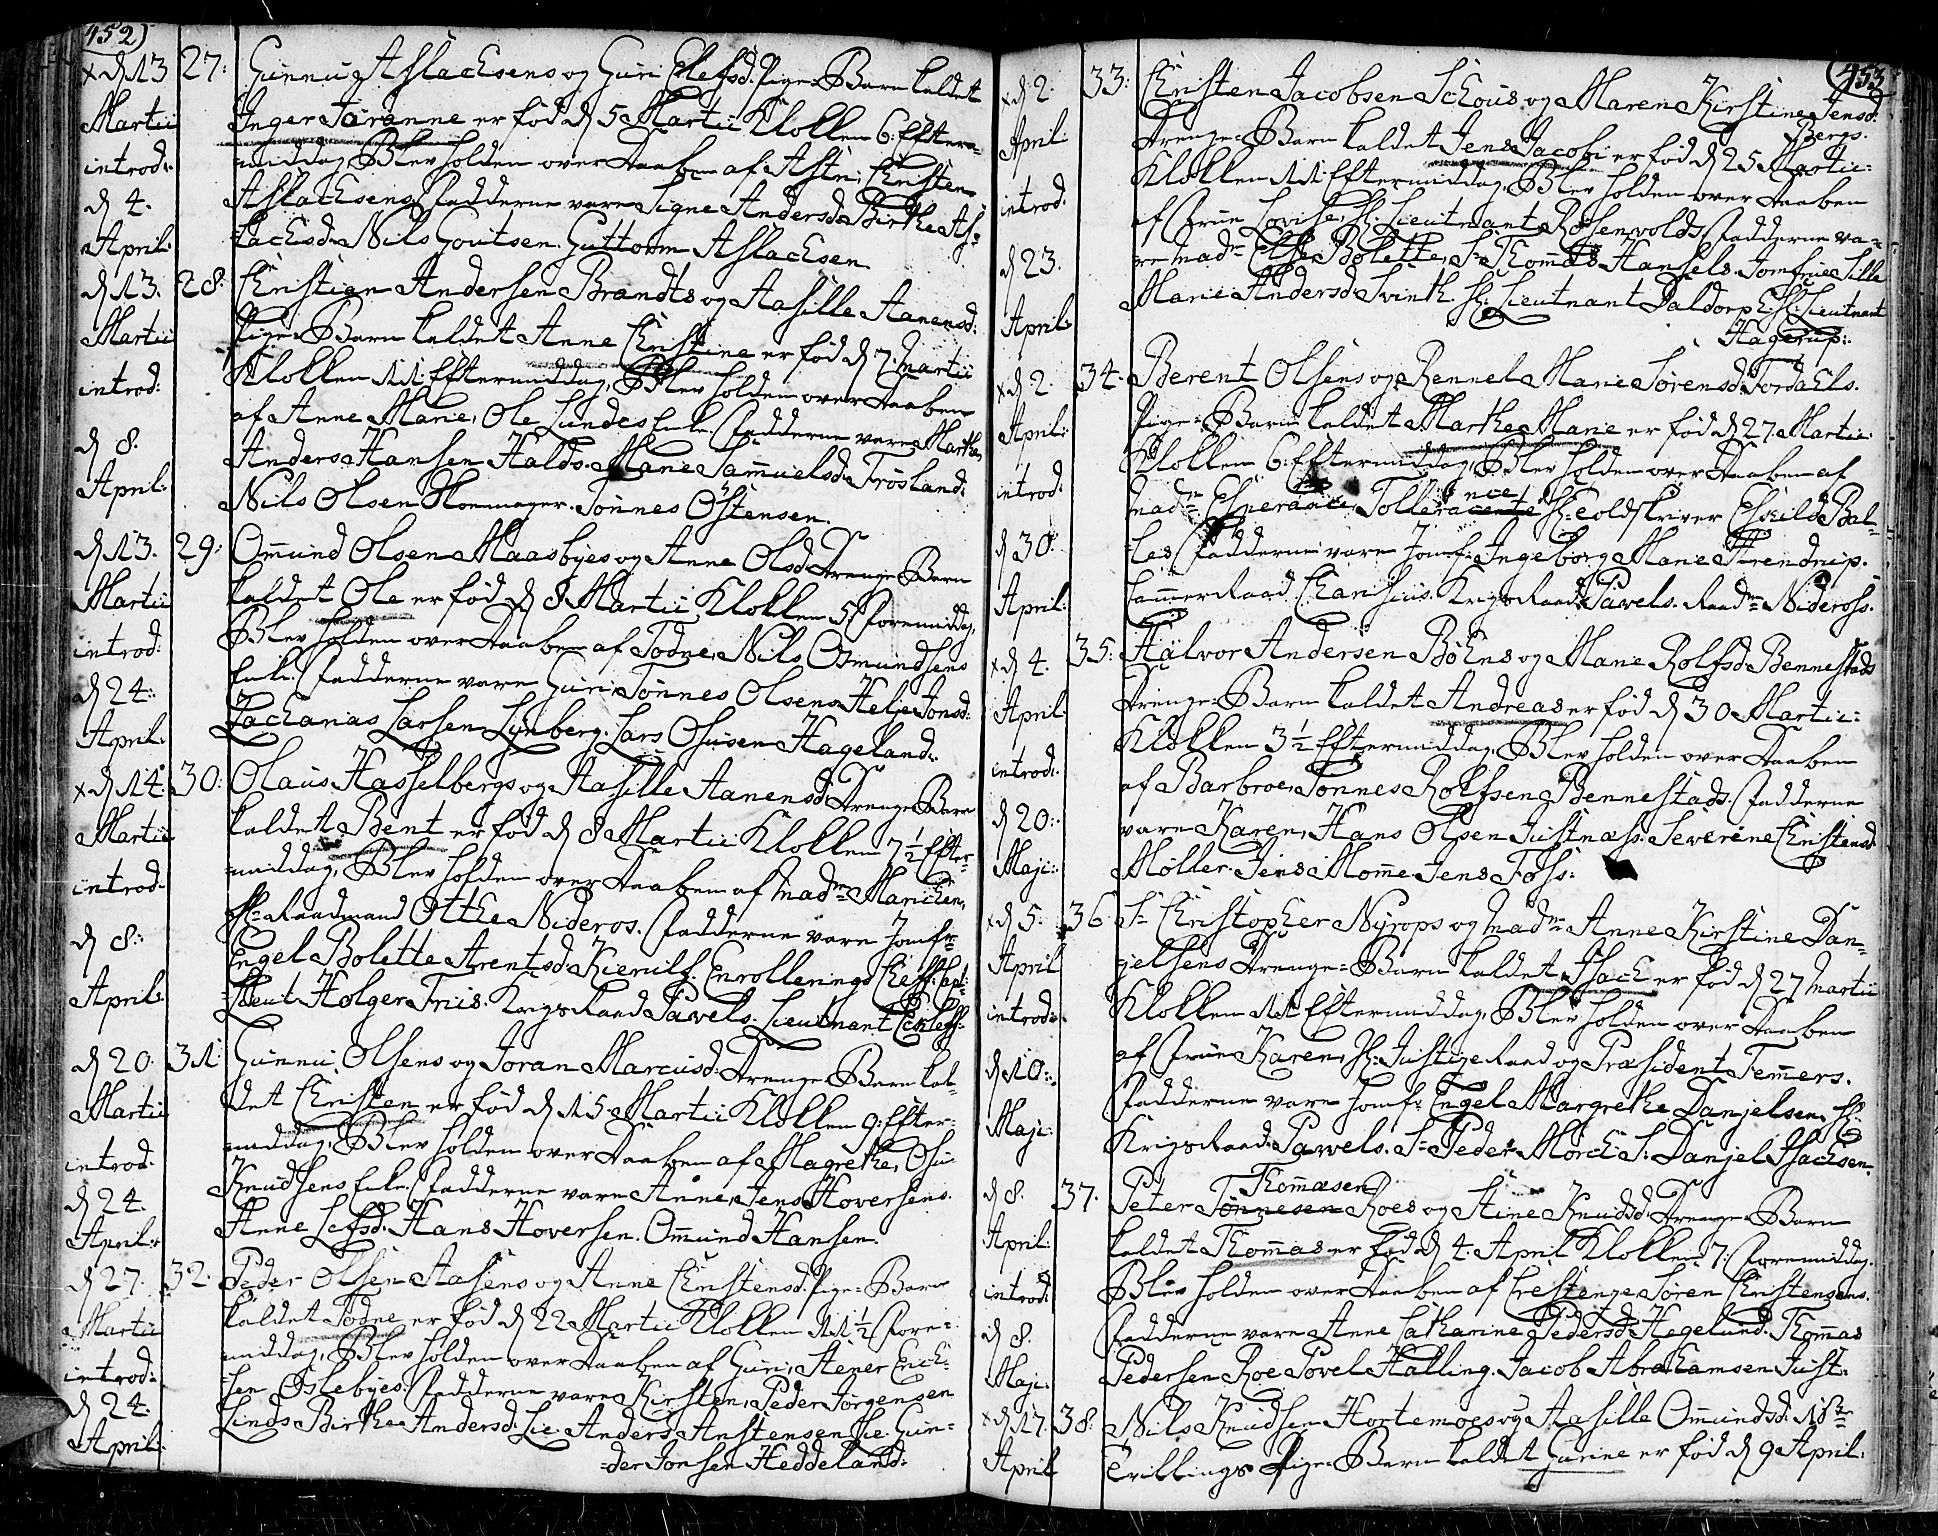 452)
x d 13 Martii introd: d 4. April:
27: Gunnug Aslachsens og Guri Elefsd. Pige-Barn kaldet
Inger Taranne er fød d 5 Martii Klokken 6: Efter-
middag, Blev holden over Daaben af Astri, Christen
Aslachsens, Fadderne vare Signe Andersd. Birthe As-
lachsd. Nils Goutsen. Guttorm Aslachsen.
d 13. Martii introd: d 8. April:
28: Christian Andersen Brandts og Aasille Aanensd:
Pige-Barn kaldet Anne Christine er fød d 7. Martii
Klokken 11: Eftermiddag, Blev holden over Daaben
af Anne Marie, Ole Lundes Enke. Fadderne vare Marthe
Anders Hansen Halds. Marie Samuelsd. Frøsland.
Nils Olsen Blommager. Tønnes Østensen.
d 13. Martii introd: d 24: April:
29: Omund Olsen Maasbyes og Anne Olsd. Drenge-Barn
kaldet Ole er fød d 8 Martii Klokken 5: Formiddag,
Blev holden over Daaben af Todne, Nils Osmundsens
Enke. Fadderne vare Guri, Tønnes Olsens. Helje Jonsd:
Zacharias Larsen Lynberg. Lars Osusen Hageland.
x d 14: Martii introd: d 8: April:
30: Olaus Hasselbergs og Aasille Aanensd. Drenge-Barn
kaldet Bent er fød d 8 Martii Klokken 7 1/2 Efter-
middag, Blev holden over Daaben af Mad: Marichen,
Hr: Raadmand Otthe Nideros. Fadderne vare Jomfr:
Engel Bolette Arentsd. Kierulf. Enrollerings Cheff: Capt:
Lieut Holger Friis. Krigs Raad Pavels. Lieutnant Eckleff.
d 20. Martii introd: d 24. April:
31: Gunnu, Olsens og Joran Marcusd: Drenge-Barn kal-
det Christen er fød d 15 Martii Klokken 9: Efter-
middag, Blev holden over Daaben af Magrethe, Osu
Knudsens Enke. Fadderne vare Anne, Jens Hoversens.
Anne Lefsd. Hans Hoversen. Omund Hansen.
d 27. Martii introd: d 24: April:
32: Peder Olsen Aasens og Anne Christensd. Pige-Barn
kaldet Todne er fød d 22 Martii Klokken 11 1/2 Fore-
middag, Blev holden over Daaben af Guri, Stener Erich-
sen Oslebyes: Fadderne vare Kirsten, Peder Jørgensen
Linds. Birthe Andersd. Lie. Anders Anstensen Lie. Gun-
der Jonsen Heddeland.
453
x d 2. April introd: d 23. April:
33: Christen Jacobsen Schous og Maren Kirstine Jensd:
Bergs.
Drenge-Barn kaldet Jens Jacobi er fød d 25 Martii:
Klokken 11: Eftermiddag, Blev holden over Daaben
af Frue Lovise, Hr: Lieutnant Rosenvolds, Fadderne va-
re Mad: Else Bolette, Sr. Thomas Hansels. Jomfrue Sille
Marie Andersd. Svinth. Hr: Lieutnant Daldorp Hr: Lieutnant
Hagerup:
x d 2. April: introd: d 30: April:
34. Berent Olsens og Rennel Marie Sørensd. Tordahls.
Pige-Barn kaldet Marthe Marie er fød d 27 Martii
Klokken 6: Eftermiddag, Blev holden over Daaben af
Mad: Esperance, Tollerance Hr: Toldskriver Eschild Bal-
les, Fadderne vare Jomf: Ingeborg Marie Arendrup.
Cammer Raad Chansius. Krigs Raad Pavels. Raadm: Nideross.
x d 4. April: introd: d 20: Maji:
35: Halvor Andersen Bøhns og Marie Rolfsd. Bennestads
Drenge-Barn kaldet Andreas er fød d 30 Martii:
Klokken 3 1/2 Eftermiddag, Blev holden over Daaben
af Barbroe, Tønnes Rolfsen Bennestads. Fadderne
vare Karen, Hans Olsen Justnæss: Severine Christensd
Møller. Jens Momme. Jens Foss:
x d 5. April introd: d 10: Maji:
36 Sr. Christopher Nyrops og Mad: Anne Kirstine Dan-
jelsens Drenge-Barn kaldet Isach er fød d 27 Martii
Klokken 11 Eftermiddag, Blev holden over Daaben
af Frue Karen, Hr: Justize Raad og Præsident Femmers.
Fadderne vare Jomf: Engel Margrethe Danjelsen, Hr:
Krigs Raad Pavels. Sr. Peder Mørch Sr. Danjel Isachsen.
d 8. April: introd: d 8. Maji:
37. Thomasen
Peter Tønnesen Roes og Stine Knudsd. Drenge-Barn
kaldet Thommas er fød d 4. April Klokken 7: Foremiddag.
Blev holden over Daaben af Crestenze Søren Christensens.
Fadderne vare Anne Catharine Pedersd. Hegelund. Thommas
Pedersen Roe. Povel Halling. Jacob Abrahamsen Just:
x d 17. April
38: Nils Knudsen Hortemoes og Aasille Omundsd.
Tvillings Pige-Barn kaldet Gurine er fød d 9 April: